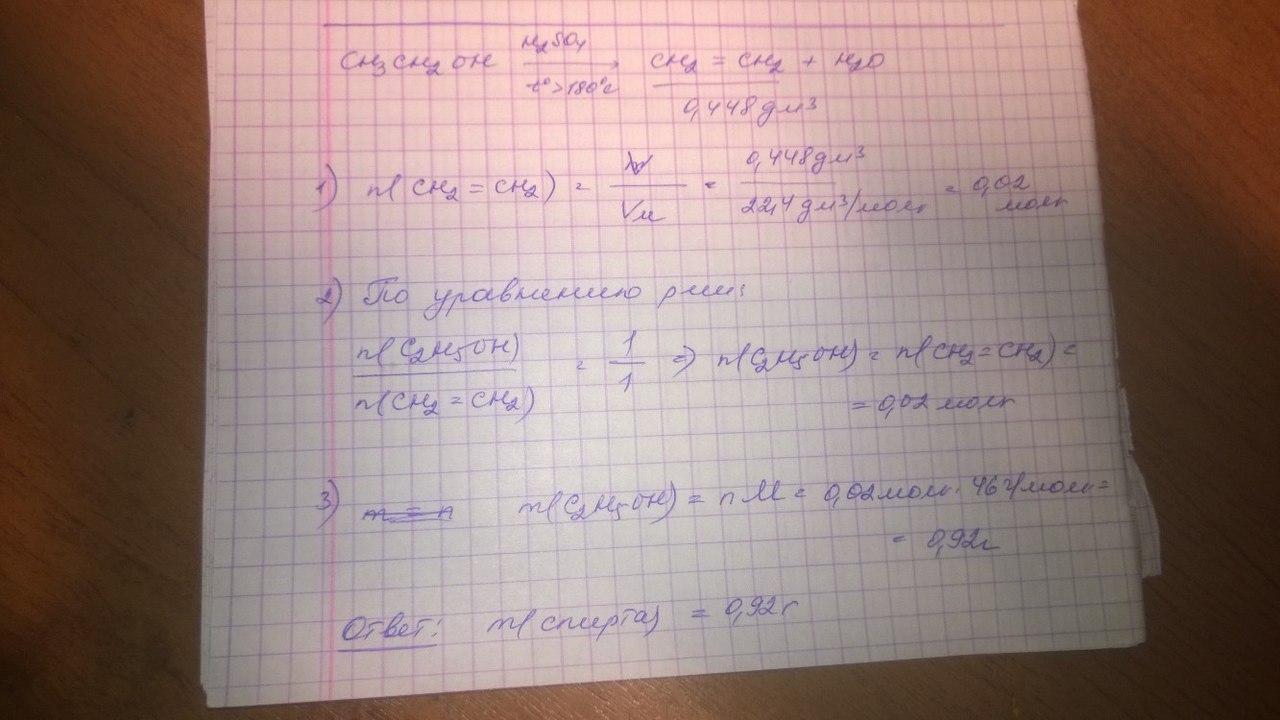 CH₃CH₂OH H₂SO₄ t°>180°C CH₂ = CH₂ + H₂O
0,448 дм³
1) n(CH₂ = CH₂) = V/Vм = 0,448 дм³ / 22,4 дм³/моль = 0,02 моль
2) По уравнению р-ции:
n(C₂H₅OH) / n(CH₂ = CH₂) = 1/1 ⇒ n(C₂H₅OH) = n(CH₂ = CH₂) =
= 0,02 моль
3) m(C₂H₅OH) = n M = 0,02 моль · 46 г/моль =
= 0,92 г
Ответ: m(спирта) = 0,92 г